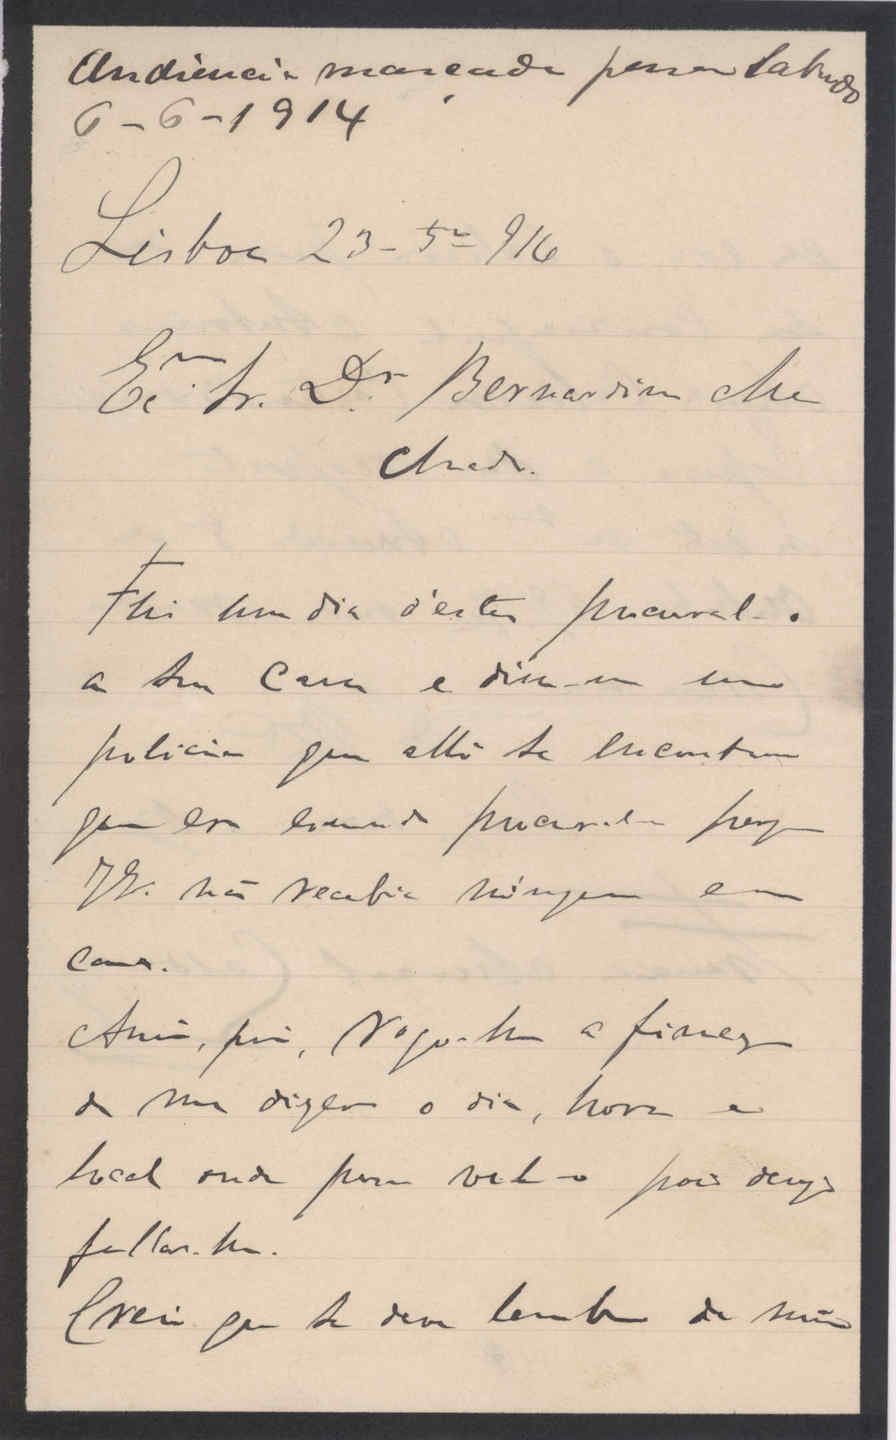 Audiencia marcada para Sabado
6-6-1914
Lisboa 23-5º-914
Exmo Sr. Dr. Bernardino Ma
chado.
Fui um dia d'estes procural-o
a sua casa e disse-me um
policia que alli se encontrava
que era escusado procural-o porque
V. Ex. não recebia ninguem em
casa.
Assim, pois, rogo-lhe a fineza
de me dizer o dia, hora e
local onde posso vel-o pois desejo
fallar-lhe.
Creio que se deve lembrar de mim